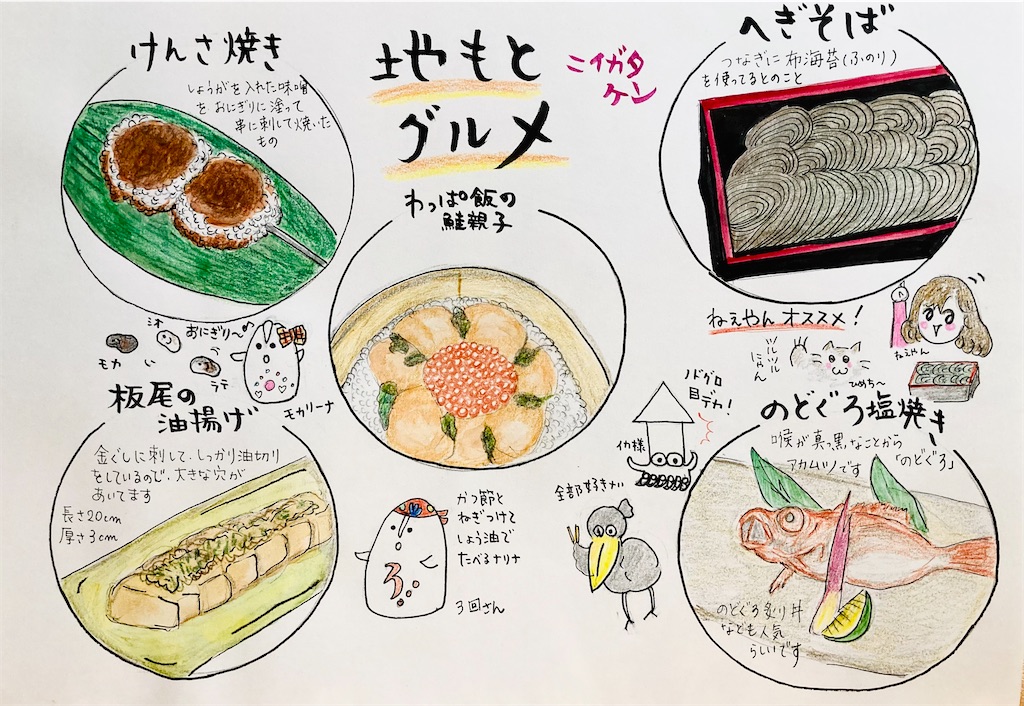 けんさ焼き
しょうがを入れた味噌
を おにぎりに塗って
串に刺して焼いた
もの
地やもと
グルメ
ニイガタ
ケン
へぎそば
つなぎに布海苔(ふのり)
を使ってるとのこと
わっぱ飯の
鮭親子
ねぇやんオススメ!
ねぇやん
ツルツル
にゃん
ひめち〜
おにぎり〜♪
モカ
ミオ
い
ラテ
モカリーナ
板尾の
油揚げ
金ぐしに刺して、しっかり油切り
をしているので、大きな穴が
あいてます
長さ20cm
厚さ3cm
かつ節と
ねぎつけて
しょう油で
たべるナリナ
ろ
3回さん
ノドグロ
目デカ!
イカ様
全部好き〃
のどぐろ塩焼き
喉が真っ黒なことから
アカムツです「のどぐろ」
のどぐろ炙り丼
なども人気
らしいです